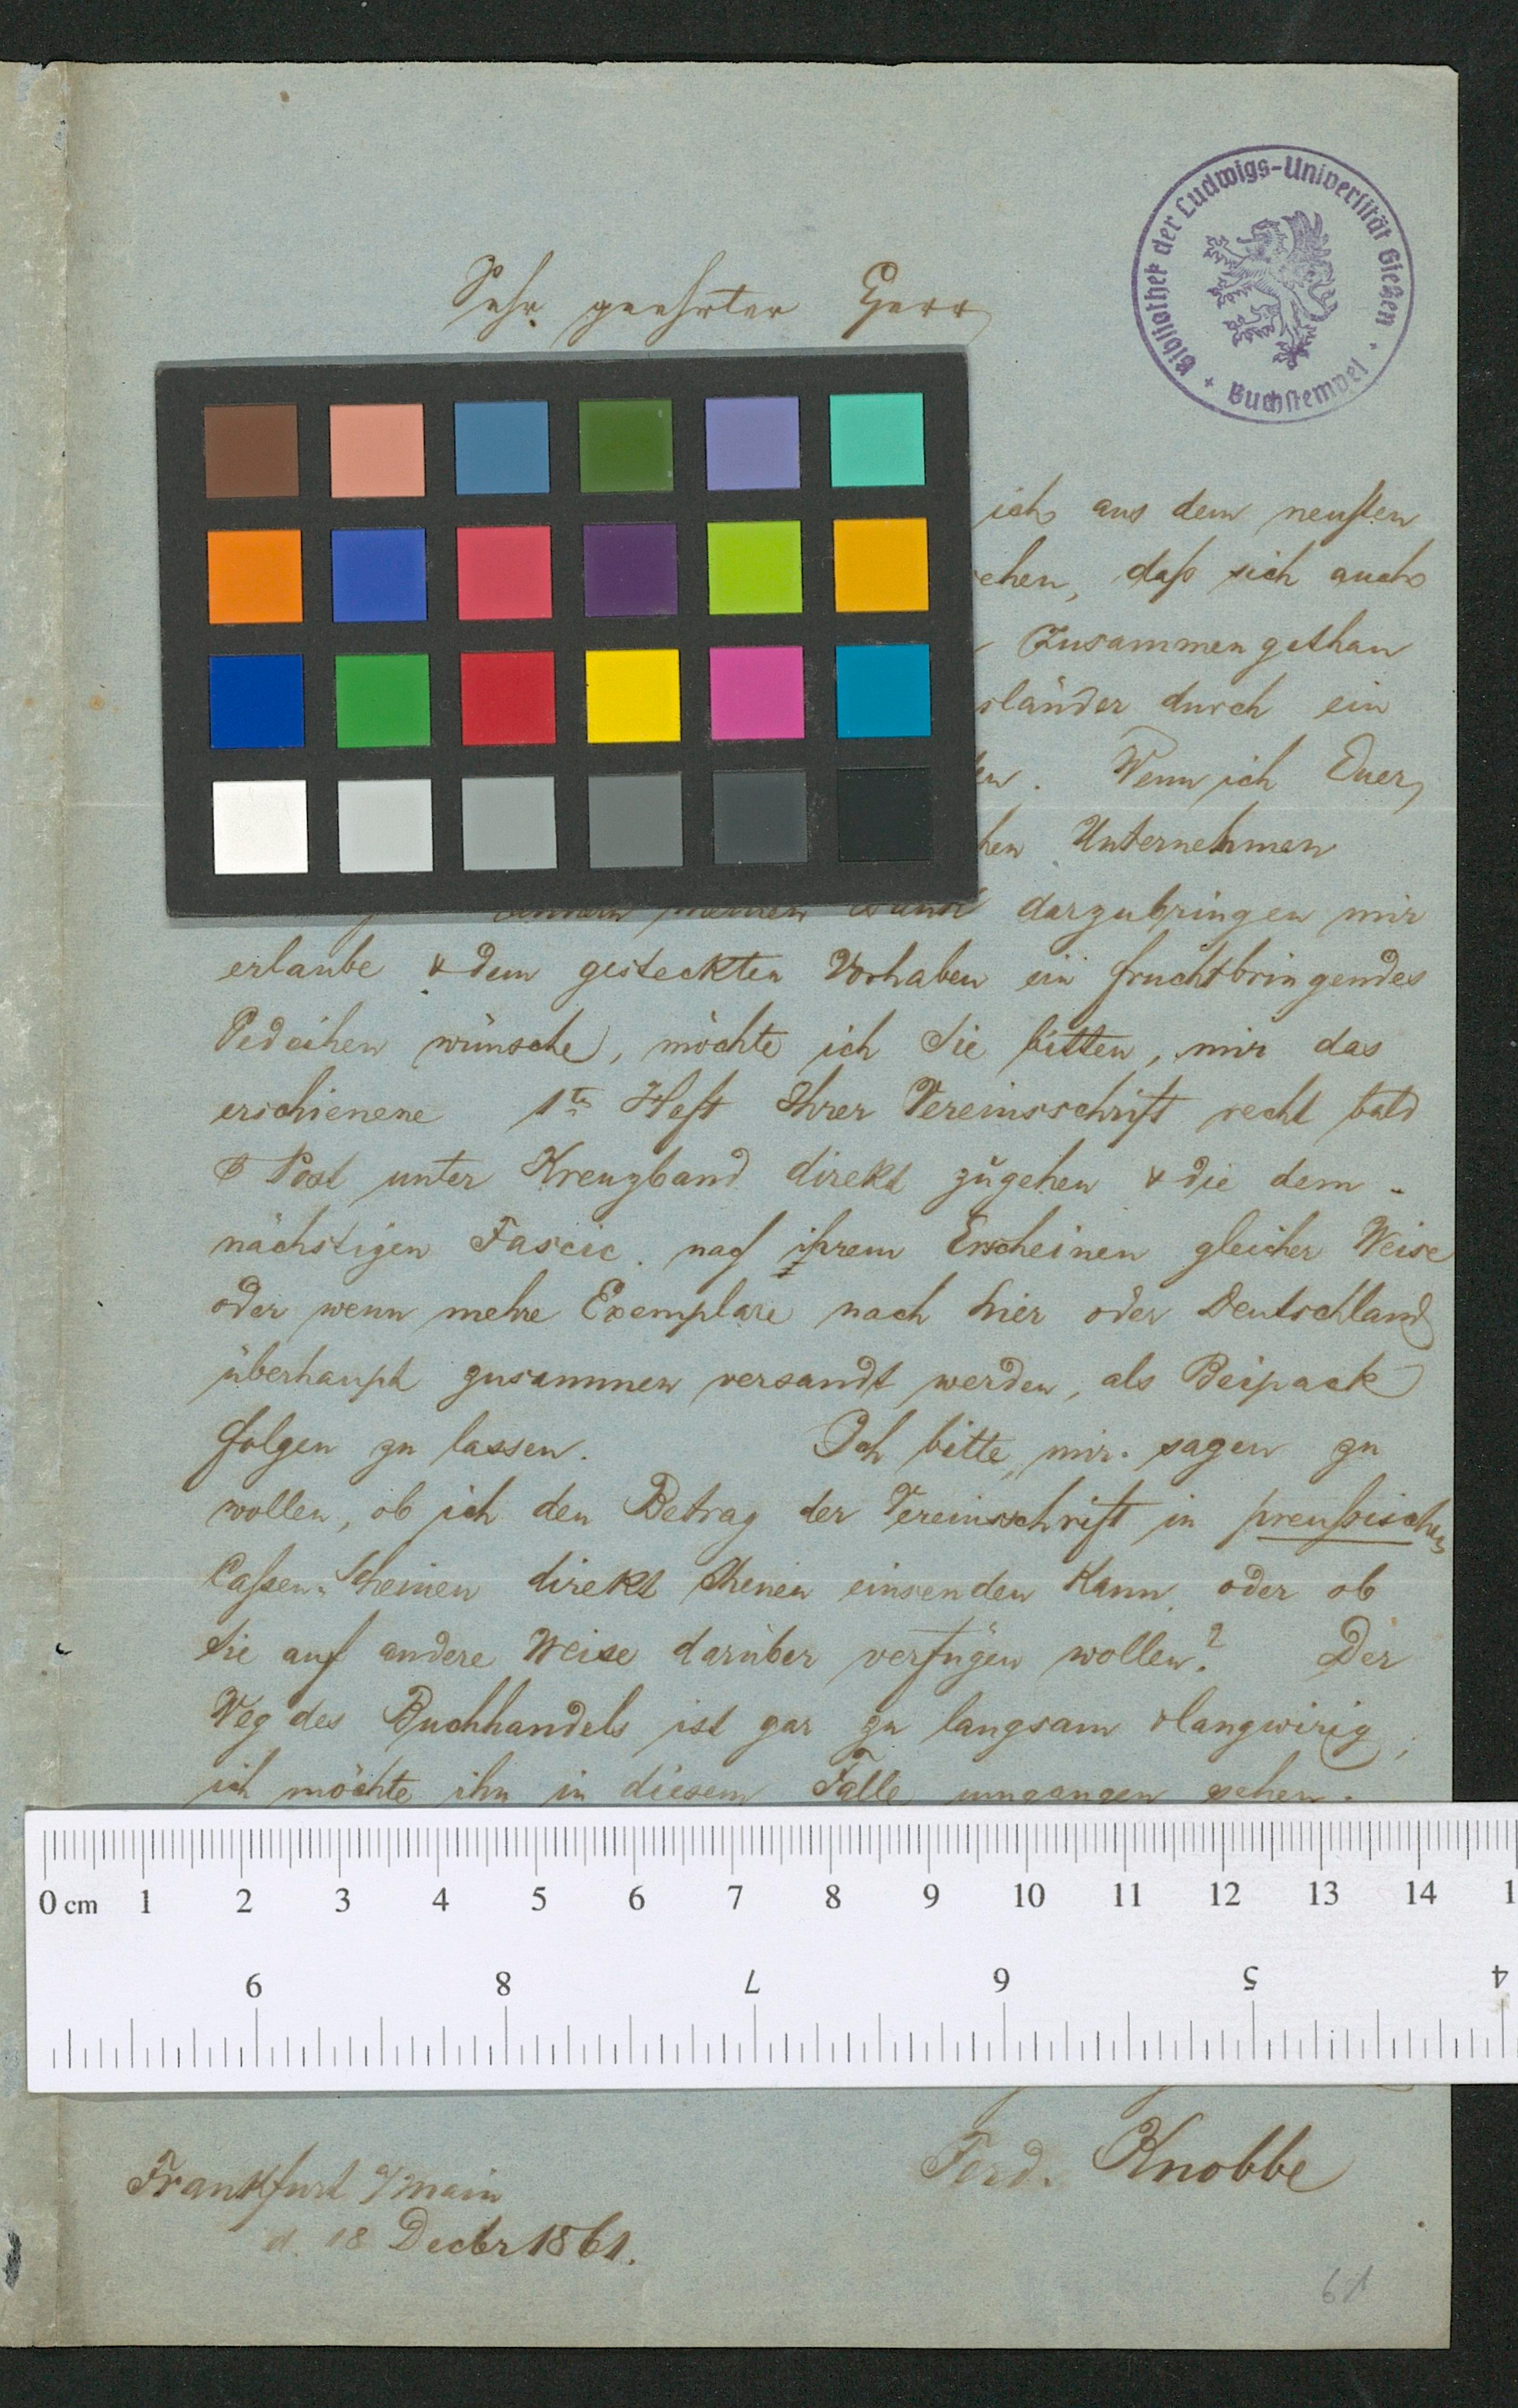 Bibliothek der Ludwigs-Universität Gießen
Buchstempel
Sehr geehrter Herr
ich aus dem neusten
ehen, daß sich auch
Zusammengethan
sländer durch ein
Wenn ich Euer
hen Unternehmen
meinen Dank darzubringen mir
erlaube & dem gesteckten Vorhaben ein fruchtbringendes
Gedeihen wünsche, möchte ich Sie bitten, mir das
erschienene 1te Heft Ihrer Vereinsschrift recht bald
Post unter Kreuzband direkt zugehen & die dem-
nächstigen Fascic. nach ihrem Erscheinen gleicher Weise
oder wenn mehre Exemplare nach hier oder Deutschland
überhaupt zusammen versandt werden, als Beipack
folgen zu lassen. Ich bitte, mir sagen zu
wollen, ob ich den Betrag der Vereinsschrift in preußischen
Caßen-Scheinen direkt Ihnen einsenden kann, oder ob
Sie auf andere Weise darüber verfügen wollen? Der
Weg des Buchhandels ist gar zu langsam & langwirig,
ich möchte ihn in diesem Falle umgangen sehen.
0 cm 1 2 3 4 5 6 7 8 9 10 11 12 13 14 1
9 8 7 6 5 4
Ferd. Knobbe
Frankfurt a/Main
d. 18 Decbr 1861.
61